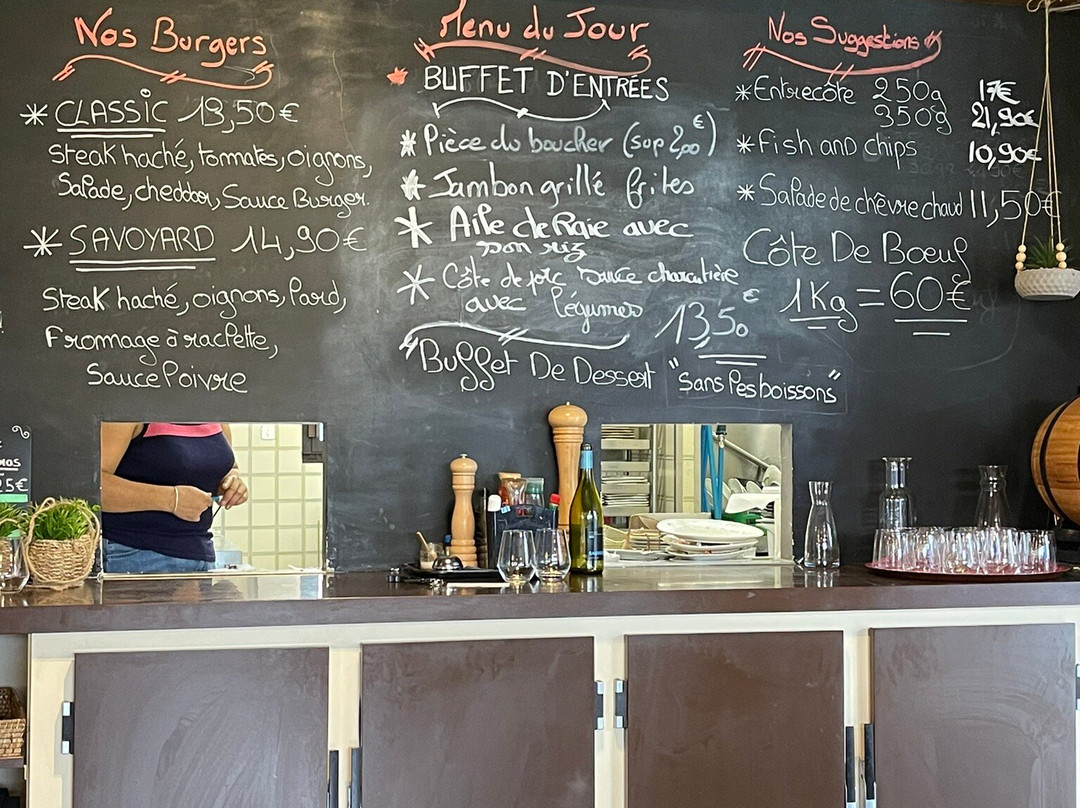 Nos Burgers
* CLASSIC 13,50€
Steak haché, tomates, oignons,
Salade, cheddar, Sauce Burger.
* SAVOYARD 14,90€
Steak haché, oignons, Lard,
Fromage à raclette,
Sauce Poivre
Menu du Jour
BUFFET D'ENTRÉES
* Pièce du boucher (sup 2,00€)
* Jambon grillé frites
* Aile de Raie avec
son riz
* Côte de porc sauce charcutière
avec légumes
13,50€
Buffet De Dessert "Sans les boissons"
Nos Suggestions
* Entrecôte 250g 17€
350g 21,90€
* Fish and chips 10,90€
* Salade de chèvre chaud 11,50€
Côte De Boeuf
1Kg = 60€